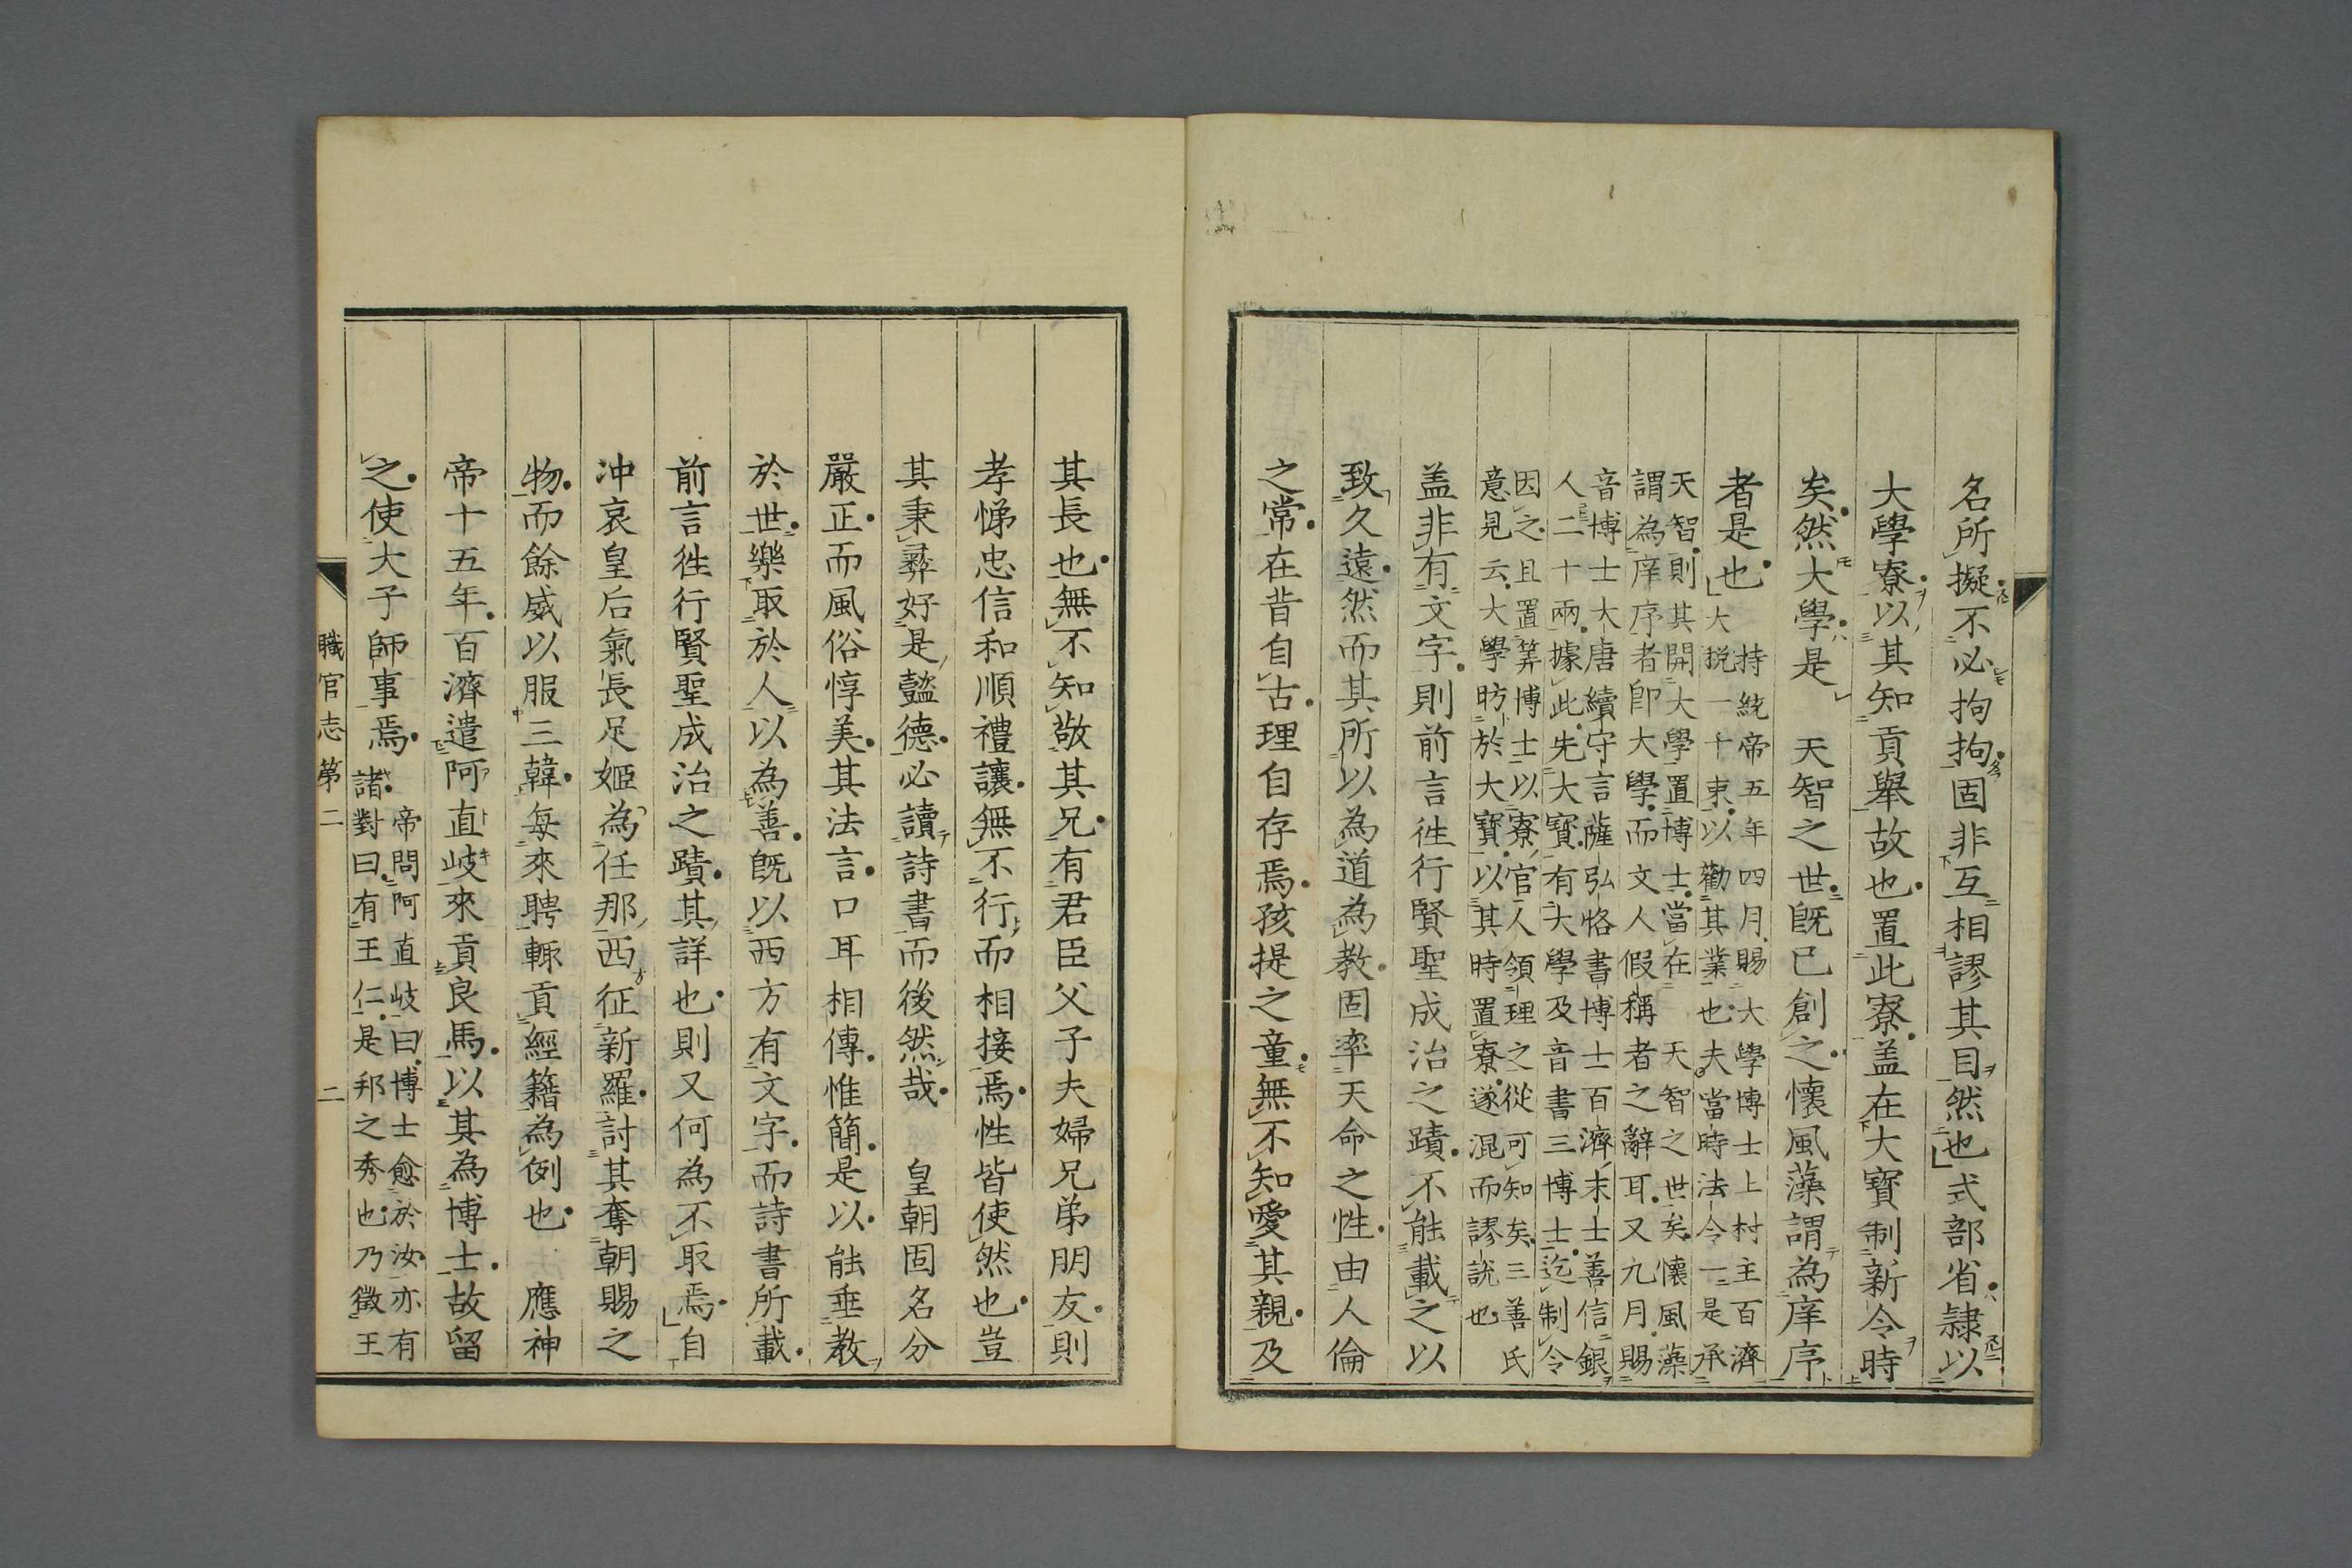 名所擬不必拘拘固非互相謬其目然也式部省隷以
大學寮以其知貢舉故也置此寮盖在大寶制新令時
矣然大學是　天智之世既已創之懷風藻謂為庠序
者是也
持統帝五年四月賜大學博士上村主百濟
大税一十束以勸其業也夫當時法令一是承
天智則其開大學置博士當在　天智之世矣懷風藻
謂為庠序者即大學而文人假稱者之辭耳又九月賜
音博士大唐續守言薩弘恪書博士百濟末士善信銀
人二十兩據此先大寶有大學及音書三博士迄制令
因之且置筭博士以寮官人領理之從可知矣三善氏
意見云大學昉於大寶以其時置寮遂混而謬說也
盖非有文字則前言徃行賢聖成治之蹟不能載之以
致久遠然而其所以為道為教固率天命之性由人倫
之常在昔自古理自存焉孩提之童無不知愛其親及
其長也無不知敬其兄有君臣父子夫婦兄弟朋友則
孝悌忠信和順禮讓無不行而相接焉性皆使然也豈
其秉彝好是懿德必讀詩書而後然哉　皇朝固名分
嚴正而風俗惇美其法言口耳相傳惟簡是以能垂教
於世樂取於人以為善既以西方有文字而詩書所載
前言徃行賢聖成治之蹟其詳也則又何為不取焉自
冲哀皇后氣長足姬為任那西征新羅討其奪朝賜之
物而餘威以服三韓每來聘輒貢經籍為例也　應神
帝十五年百濟遣阿直岐來貢良馬以其為博士故留
之使大子師事焉
帝問阿直岐曰博士愈於汝亦有
諸對曰有王仁是邦之秀也乃徵王
職官志第二
二